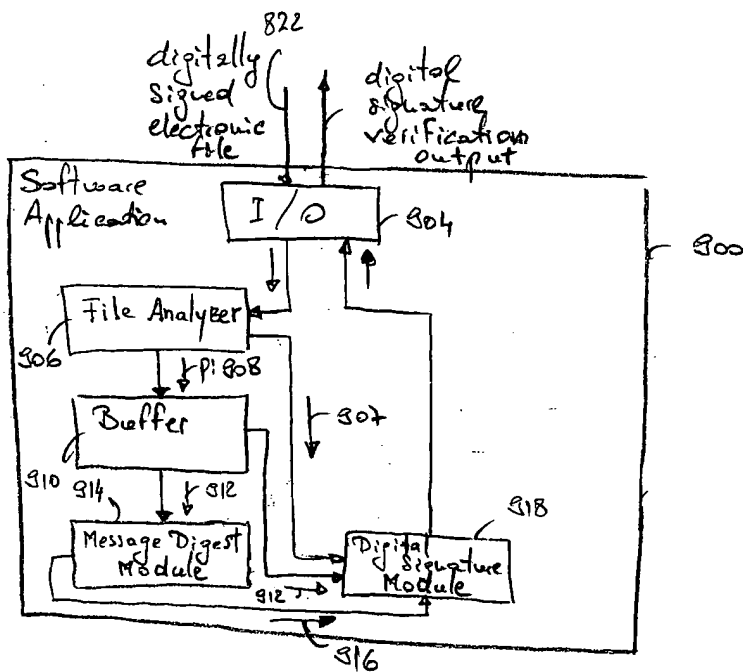 822
digitally
signed
electronic
file
digital
signature
verification
output
Software
Application
I/O
904
900
File Analyzer
906
Pi 908
907
Buffer
910
914
912
918
Message Digest
Module
Digital
Signature
Module
912
916